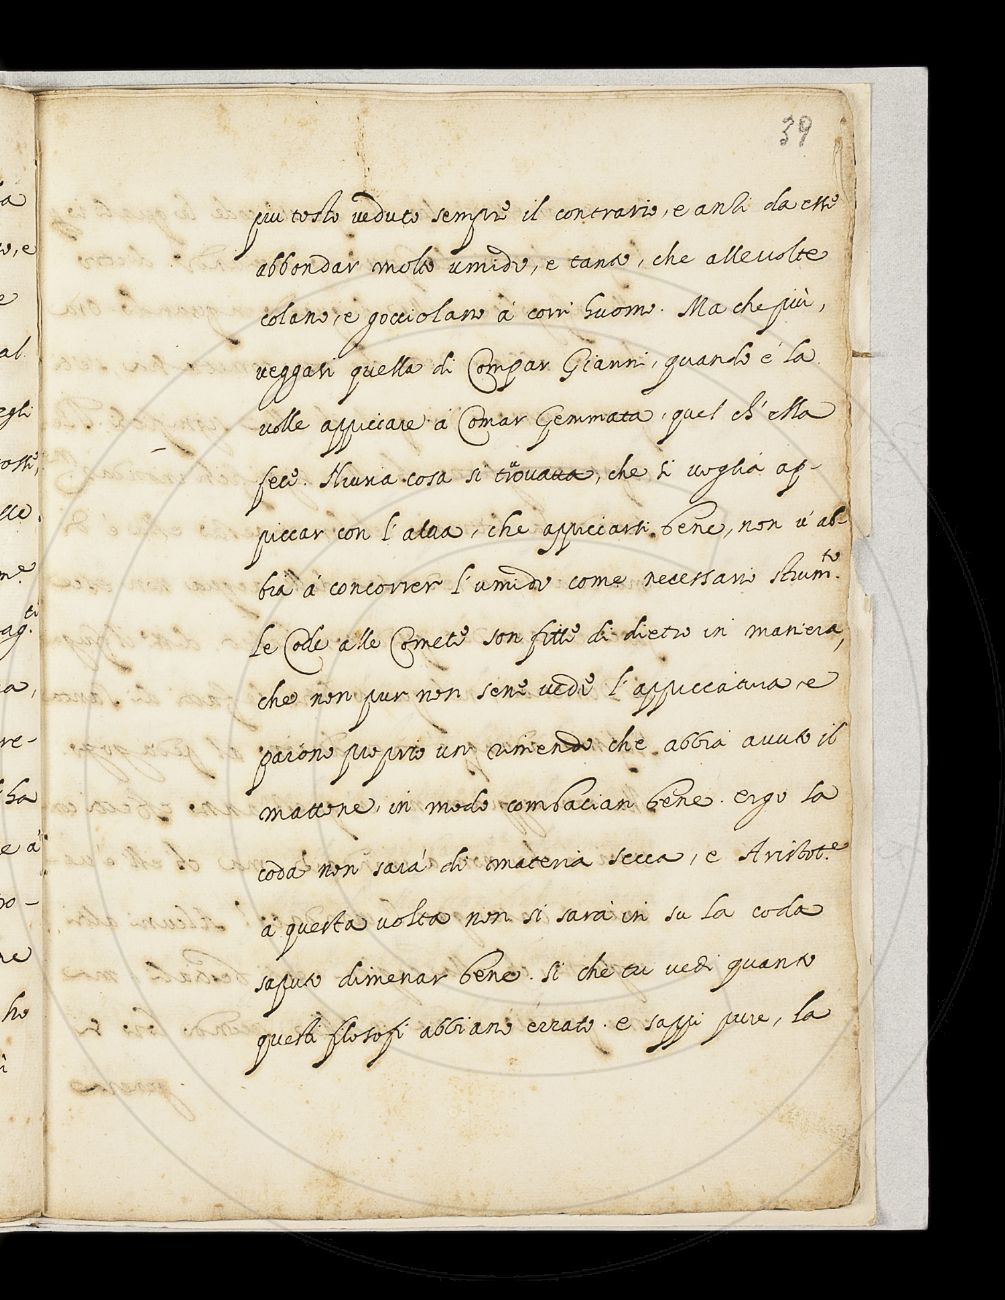 39
piu tosto veduto sempre il contrario, e anti da esse
abbondar molto umido, e tanto, che alle volte
colano, e gocciolano á corr' huomo. Ma che più,
veggasi quella di Compar Gianni, quando é la
volle appiccare á Comar Gemmata, quel ch'ella
fece. Niuna cosa si trouaua, che si voglia ap-
piccar con l'altra, che appiccarsi bene, non v'ab-
bia á concorrer l'umido come necessario strum.to
Le Code alle Comete son fitte di dietro in maniera,
che non pur non sene vede l'appiccatura, e
paiono proprio un rimendo che abbia avuto il
mattone, in modo combacian bene. ergo la
coda non sará di materia secca, e Aristot.e
a questa volta non si sarà in su la coda
saputo dimenar bene. Si che tu vedi quanto
questi filosofi abbiano errato. e sappi pure, la